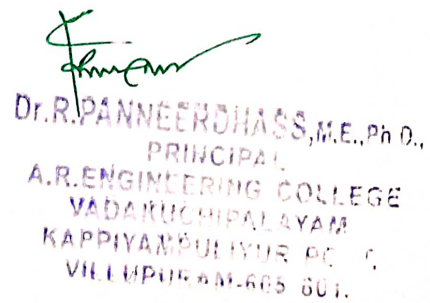 Dr.R.PANNEERDHASS,M.E.,Ph D.,
PRINCIPAL
A.R.ENGINEERING COLLEGE
VADAKUCHIPALAYAM
KAPPIYAMPULIYUR PO
VILLUPURAM-605 601.